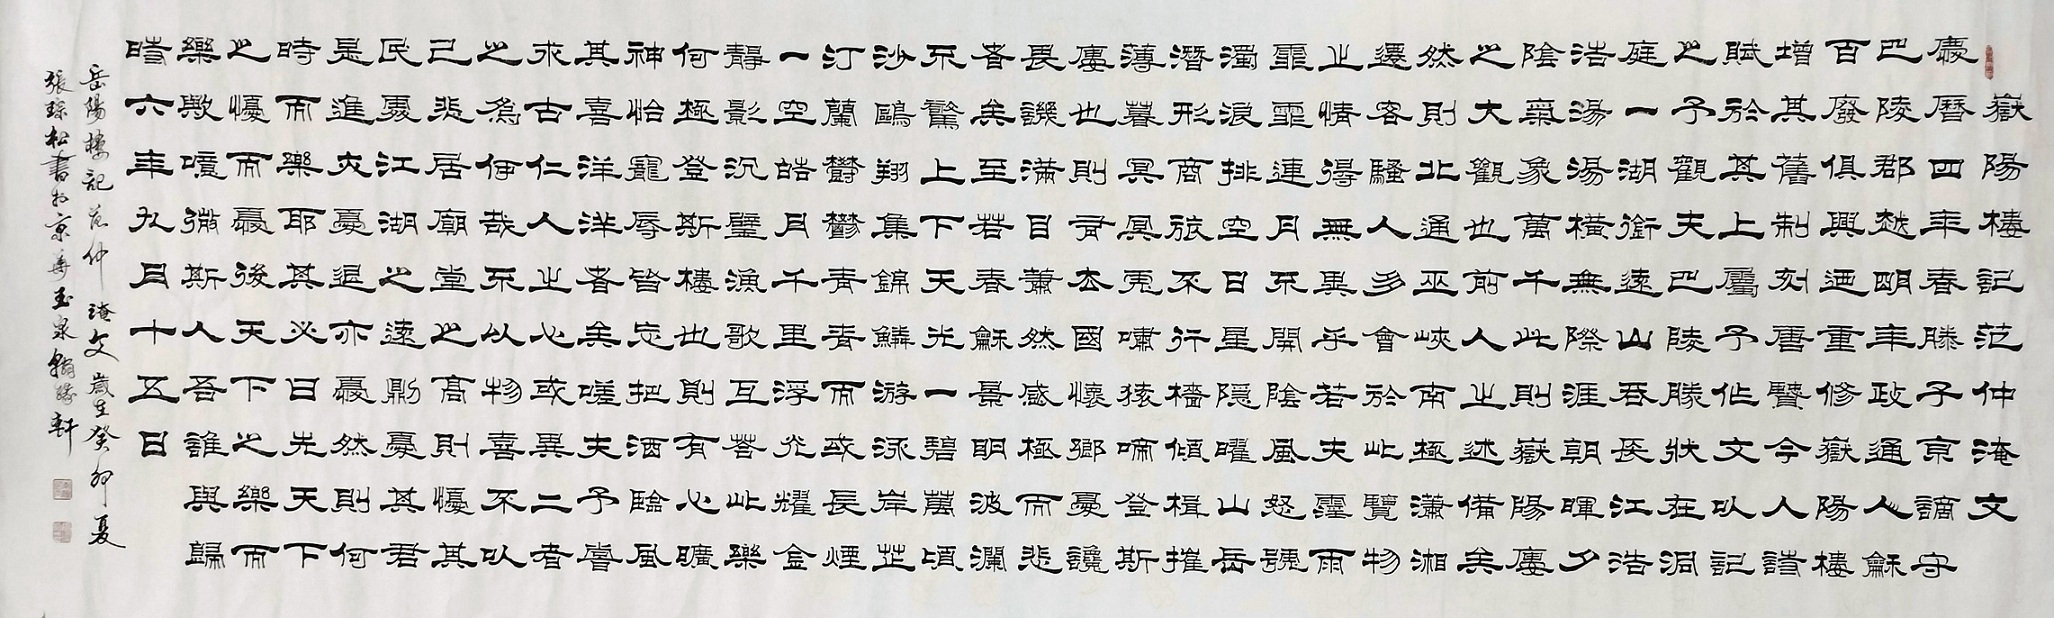 嶽陽樓記范仲淹文
慶曆四年春滕子京謫守
巴陵郡越明年政通人龢
百廢俱興迺重修嶽陽樓
增其舊制刻唐賢今人詩
賦於其上屬予作文以記
之予觀夫巴陵勝狀在洞
庭一湖銜遠山吞長江浩
浩湯湯橫無際涯朝暉夕
陰氣象萬千此則嶽陽廔
之大觀也前人之述備矣
然則北通巫峽南極瀟湘
遷客騷人多會於此覽物
之情得無異乎若夫霪雨
霏霏連月不開陰風怒號
濁浪排空日星隱曜山岳
潛形商旅不行檣傾楫摧
薄暮冥冥虎嘯猿啼登斯
廔也則有去國懷鄉憂讒
畏譏滿目蕭然感極而悲
者矣至若春龢景明波瀾
不驚上下天光一碧萬頃
沙鷗翔集錦鱗游泳岸芷
汀蘭鬱鬱青青而或長煙
一空皓月千里浮光耀金
靜影沉璧漁歌互荅此樂
何極登斯樓也則有心曠
神怡寵辱皆忘把酒臨風
其喜洋洋者矣嗟夫予嘗
求古仁人之心或異二者
之為伊哉不以物喜不以
己悲居廟堂之高則憂其
民處江湖之遠則憂其君
是進亦憂退亦憂然則何
時而樂耶其必曰先天下
之憂而憂後天下之樂而
樂歟噫微斯人吾誰與歸
時六年九月十五日
岳陽樓記范仲淹文歲在癸卯夏
張琮松書於京華玉泉翰緣軒